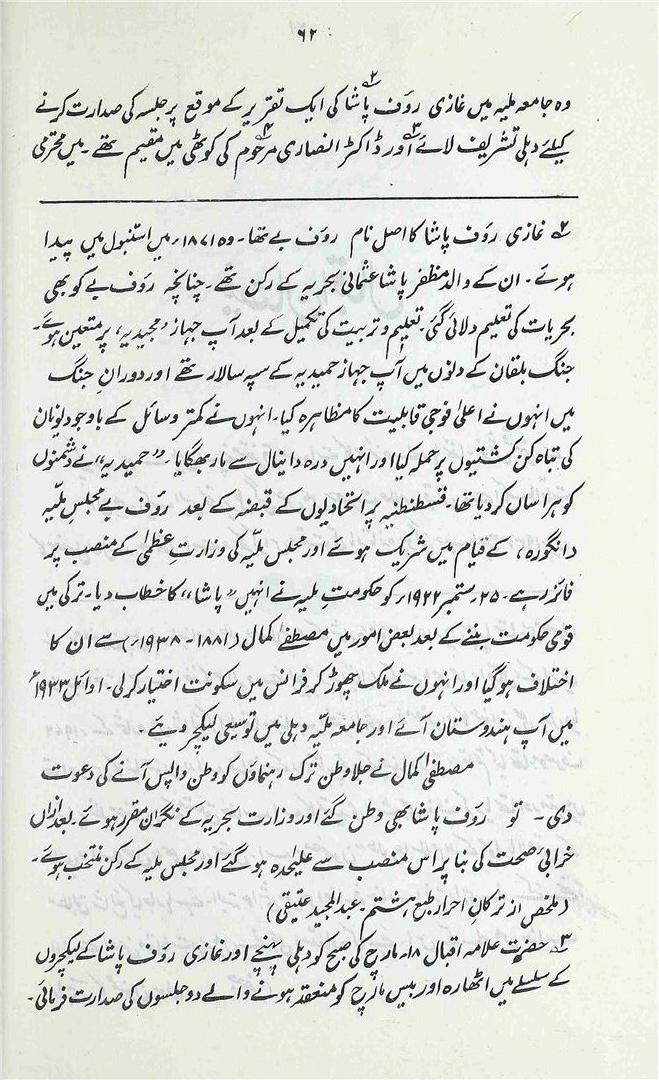 ۶۲
وہ جامعہ ملیہ میں غازی رؤف پاشا۲ کی ایک تقریر کے موقع پر جلسہ کی صدارت کرنے
کیلئے دہلی تشریف لائے۳ اور ڈاکٹر انصاری مرحوم۴ کی کوٹھی میں مقیم تھے ۔ میں محترمی
۲ غازی رؤف پاشا کا اصل نام رؤف بے تھا ۔ وہ ۱۸۷۱ء میں استنبول میں پیدا
ہوئے ۔ ان کے والد مظفر پاشا عثمانی بحریہ کے رکن تھے ۔ چنانچہ رؤف بے کو بھی
بحریات کی تعلیم دلائی گئی ۔ تعلیم و تربیت کی تکمیل کے بعد آپ جہاز ’مجیدیہ‘ پر متعین ہوئے ۔
جنگ بلقان کے دنوں میں آپ جہاز حمیدیہ کے سپہ سالار تھے اور دورانِ جنگ
میں انہوں نے اعلیٰ فوجی قابلیت کا مظاہرہ کیا ۔ انہوں نے کمتر وسائل کے باوجود یونان
کی تباہ کن کشتیوں پر حملہ کیا اور انہیں درہ دانیال سے مار بھگایا ۔ ’’حمیدیہ‘‘ نے دشمنوں
کو ہراساں کر دیا تھا ۔ قسطنطنیہ پر اتحادیوں کے قبضہ کے بعد رؤف بے مجلسِ ملیّہ
(انگورہ) کے قیام میں شریک ہوئے اور مجلس ملیّہ کی وزارتِ عظمیٰ کے منصب پر
فائز رہے ۔ ۲۵ ستمبر ۱۹۲۲ء کو حکومتِ ملیہ نے انہیں ’’پاشا‘‘ کا خطاب دیا ۔ ترکی میں
قومی حکومت بننے کے بعد بعض امور میں مصطفےٰ کمال (۱۸۸۱ - ۱۹۳۸ء) سے ان کا
اختلاف ہو گیا اور انہوں نے ملک چھوڑ کر فرانس میں سکونت اختیار کر لی ۔ اوائل ۱۹۳۳ء
میں آپ ہندوستان آئے اور جامعہ ملیّہ دہلی میں توسیعی لیکچر دیئے ۔
مصطفیٰ کمال نے جلاوطن ترک رہنماؤں کو وطن واپس آنے کی دعوت
دی ۔ تو رؤف پاشا بھی وطن گئے اور وزارت بحریہ کے نگران مقرر ہوئے ۔ بعد ازاں
خرابیٔ صحت کی بنا پر اس منصب سے علیٰحدہ ہو گئے اور مجلس ملیہ کے رکن منتخب ہوئے ۔
(ملخص از ترکانِ احرار طبع ہشتم ۔ عبدالمجید عتیقی)
۳ حضرت علامہ اقبال ۱۸ ۔ مارچ کی صبح کو دہلی پہنچے اور غازی رؤف پاشا کے لیکچروں
کے سلسلے میں اٹھارہ اور بیس مارچ کو منعقد ہونے والے دو جلسوں کی صدارت فرمائی ۔